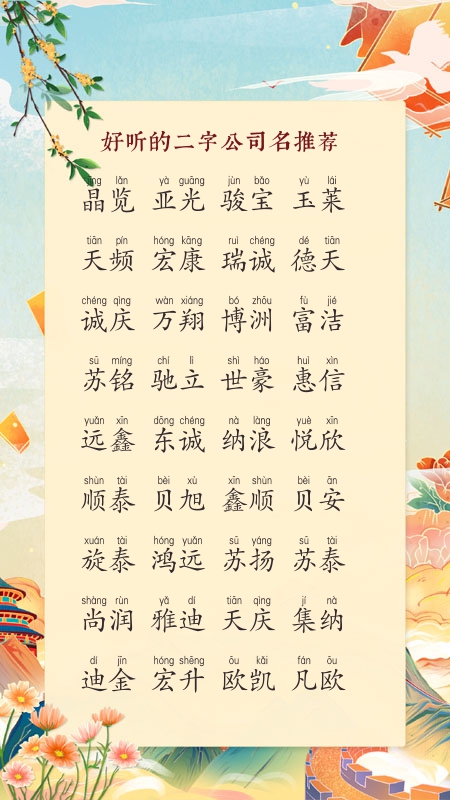 好听的二字公司名推荐
jīng lǎn yà guāng jùn bǎo yù lái
晶览 亚光 骏宝 玉莱
tiān pín hóng kāng ruì chéng dé tiān
天频 宏康 瑞诚 德天
chéng qìng wàn xiáng bó zhōu fù jié
诚庆 万翔 博洲 富洁
sū míng chí lì shì háo huì xìn
苏铭 驰立 世豪 惠信
yuǎn xīn dōng chéng nà làng yuè xīn
远鑫 东诚 纳浪 悦欣
shùn tài bèi xù xīn shùn bèi ān
顺泰 贝旭 鑫顺 贝安
xuán tài hóng yuǎn sū yáng sū tài
旋泰 鸿远 苏扬 苏泰
shàng rùn yǎ dí tiān qìng jí nà
尚润 雅迪 天庆 集纳
dí jīn hóng shēng ōu kǎi fán ōu
迪金 宏升 欧凯 凡欧